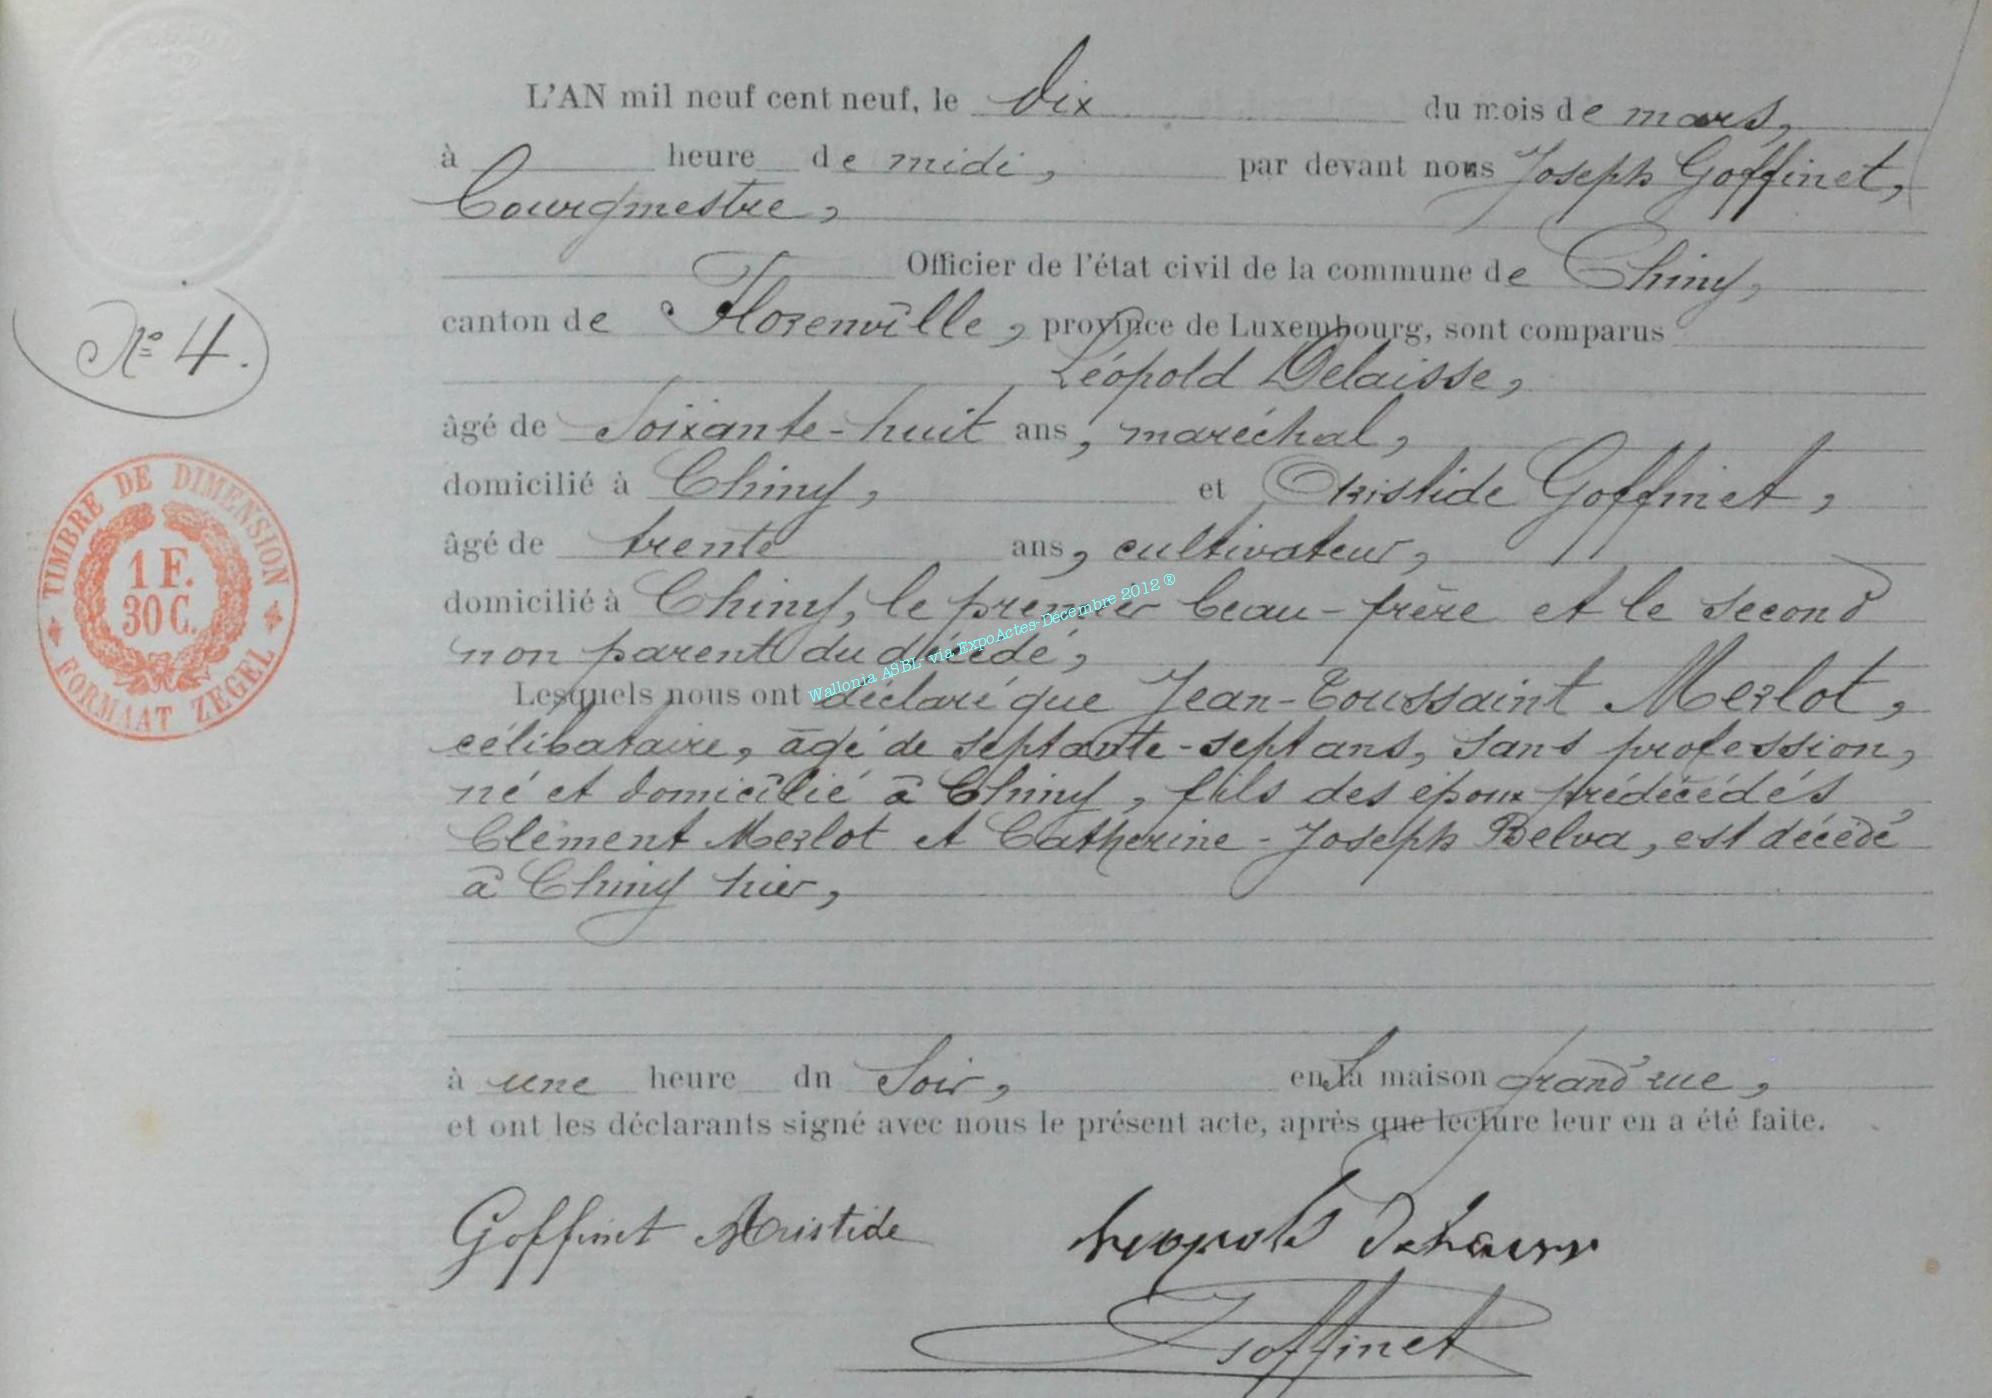 L'AN mil neuf cent neuf, le dix du mois de mars,
à heure de midi, par devant nous Joseph Goffinet,
bourgmestre,
Officier de l'état civil de la commune de Chiny,
canton de Florenville, province de Luxembourg, sont comparus
Léopold Delaisse,
âgé de soixante-huit ans, maréchal,
domicilié à Chiny, et Aristide Goffinet,
âgé de trente ans, cultivateur,
domicilié à Chiny, le premier beau-frère et le second
non parent du décédé,
Lesquels nous ont déclaré que Jean-Toussaint Merlot,
célibataire, âgé de septante-sept ans, sans profession,
né et domicilié à Chiny, fils des époux prédécédés
Clément Merlot et Catherine-Joseph Belva, est décédé
à Chiny hier,
à une heure du soir, en sa maison grand'rue,
et ont les déclarants signé avec nous le présent acte, après que lecture leur en a été faite.
Goffinet Aristide Leopold
JGoffinet
N° 4.
TIMBRE DE DIMENSION
1 F.
30 C.
FORMAAT ZEGEL
Wallonia ASBL- via ExpoActes-Décembre 2012 ®